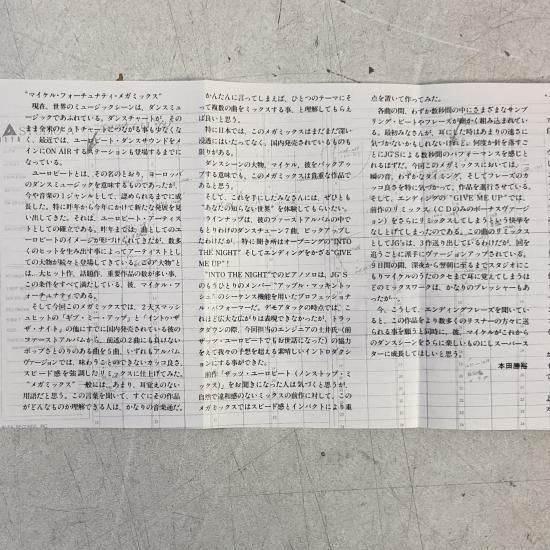 "マイケル・フォーチュナティ・メガミックス"
現在、世界のミュージックシーンは、ダンスミュ
ージックであふれている。ダンスチャートが、その
まま全米のヒットチャートにつながる事も少なくな
く、最近では、ユーロビート・ダンスサウンドをメ
インにON AIRするステーションも登場するまでに
なっている。
ユーロビートとは、その名のとおり、ヨーロッパ
のダンスミュージックを意味するものであったが、
今や音楽の1ジャンルとして、認められるまでに成
長した。特に昨年から今年にかけて新たな発展を見
い出してきた。それは、ユーロビート・アーティス
トとしての確立である。昨年までは、曲としてのユ
ーロビートのイメージが形づけられてきたが、数多
くのヒットを生み出す事によってアーティストとし
ての大物が続々と登場してきている。この"大物"と
は、大ヒット作、話題作、重要作品の数が多い事、
この条件をすべて満たしている、彼、マイケル・フ
ォーチュナティである。
そして今回このメガミックスでは、2大スマッシ
ュヒットの「ギブ・ミー・アップ」と「イントゥ・ザ
・ナイト」の他にすでに国内発売されている彼の
ファーストアルバムから、前述の2曲にも負けない
ポップさとのりのある曲を5曲、いずれもアルバム
ヴァージョンでは、味わうことのできないカッ良さ、
スピード感を強調したリミックスに仕上げてみた。
"メガミックス"一般には、あまり、耳覚えのない
用語だと思う。この言葉を聞いて、すぐにその作品
がどんなものか理解できる人は、かなりの音楽通だ。
かんたんに言ってしまえば、ひとつのテーマにそ
って複数の曲をミックスする事、と理解してもらえ
ば良いと思う。
特に日本では、このメガミックスはまだまだ深い
浸透にはいたってなく、国内発売されているものも
限りがある。
ダンスシーンの大物、マイケル、彼をバックアッ
プする意味でも、このメガミックスは貴重な作品で
あると思う。
そして、これを手にしたみなさんには、ぜひとも
"あなたの知らない世界"を体験してもらいたい。
ラインナップは、彼のファーストアルバムの中で
もとりわけのダンスチューン7曲、ピックアップし
たわけだが、特に聞き所はオープニングの"INTO
THE NIGHT"そしてエンディングをかざる"GIVE
ME UP"!
"INTO THE NIGHT"でのピアノソロは、JG'S
のもうひとりのメンバー"アップル・マッキントッ
シュ"のシーケンス機能を用いたプロフェッショナ
ル・パフォーマーだ。デモアタックの時点では、こ
れほど広大な広がりは表現できなかったが、トラッ
クダウンの際、今回担当のエンジニアの土井氏(前
ザッツ・ユーロビートでもお世話になった)の協力
をえて我々の予想を超える素晴しいイントロダクシ
ョンにする事ができた。
前作「ザッツ・ユーロビート(ノンストップ・ミ
ックス)」をお聞きになった人は気づくと思うが、
自然で違和感のないミックスの前作に対して、この
メガミックスではスピード感とインパクトにより重
点を置いて作ってみた。
各曲の間、わずか数秒間の中にさまざまなサンプ
リング・ビートやフレーズが細かく組み込まれてい
る。最初みなさんが、耳にした時はあまりの速さに
気づかないかもしれないけれど、何度か針を落すご
とにJG'Sによる数秒間のパフォーマンスを感じと
れるはずだ。今回このメガミックスにおいては、一
瞬の音、わずかなタイミング、そしてフレーズのカ
ッコ良さを特に気づかって、作品を進行させている。
そして、エンディングの"GIVE ME UP"では、
前作のリミックス、(CDのみのボーナスヴァージ
ョン)をさらにリミックスしてしまうという快挙を
なしとげてしまったのである。この曲のリミックス
としてJG'sは、3作送り出しているわけだが、回を
追うごとに派手にヴァージョンアップされている。
9日間の間、深夜から翌朝に至るまでスタジオにこ
もりマイケルのうたのクセまで耳に覚えてしまうほ
どのミックスワークは、かなりのプレッシャーもあ
ったが…。
今、こうして、エンディングフレーズを聞いてい
ると、この作品をより数多くのリスナーの方々に送
られる事を願うと同時に、彼、マイケルがこれから
のダンスシーンをさらに楽しいものにしスーパース
ターに成長してほしいと思う。
本田勝裕